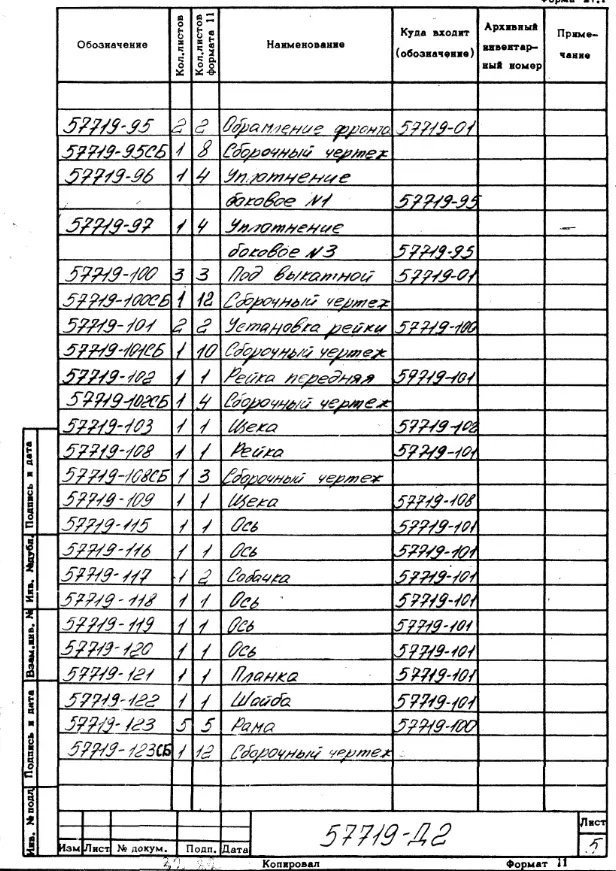 Обозначение Кол.листов Кол.листов формата 11 Наименование Куда входит (обозначение) Архивный инвентар-ный номер Приме-чание
57719-95 2 2 Обрамление фронта 57719-01
57719-95СБ 1 8 Сборочный чертеж
57719-96 1 4 Уплотнение
боковое №1 57719-95
57719-97 1 4 Уплотнение
боковое №3 57719-95
57719-100 3 3 Под выкатной 57719-01
57719-100СБ 1 12 Сборочный чертеж
57719-101 2 2 Установка рейки 57719-100
57719-101СБ 1 10 Сборочный чертеж
57719-102 1 1 Рейка передняя 57719-101
57719-102СБ 1 4 Сборочный чертеж
57719-103 1 1 Щека 57719-102
57719-108 1 1 Рейка 57719-101
57719-108СБ 1 3 Сборочный чертеж
57719-109 1 1 Щека 57719-108
57719-115 1 1 Ось 57719-101
57719-116 1 1 Ось 57719-101
57719-117 1 2 Собачка 57719-101
57719-118 1 1 Ось 57719-101
57719-119 1 1 Ось 57719-101
57719-120 1 1 Ось 57719-101
57719-121 1 1 Планка 57719-101
57719-122 1 1 Шайба 57719-101
57719-123 5 5 Рама 57719-100
57719-123СБ 1 12 Сборочный чертеж
Подпись и дата
Инв. №дубл.
Взам.инв. №
Подпись и дата
Инв. №подл
Изм Лист № докум. Подп. Дата
57719-Д2
Лист
5
Копировал Формат 11